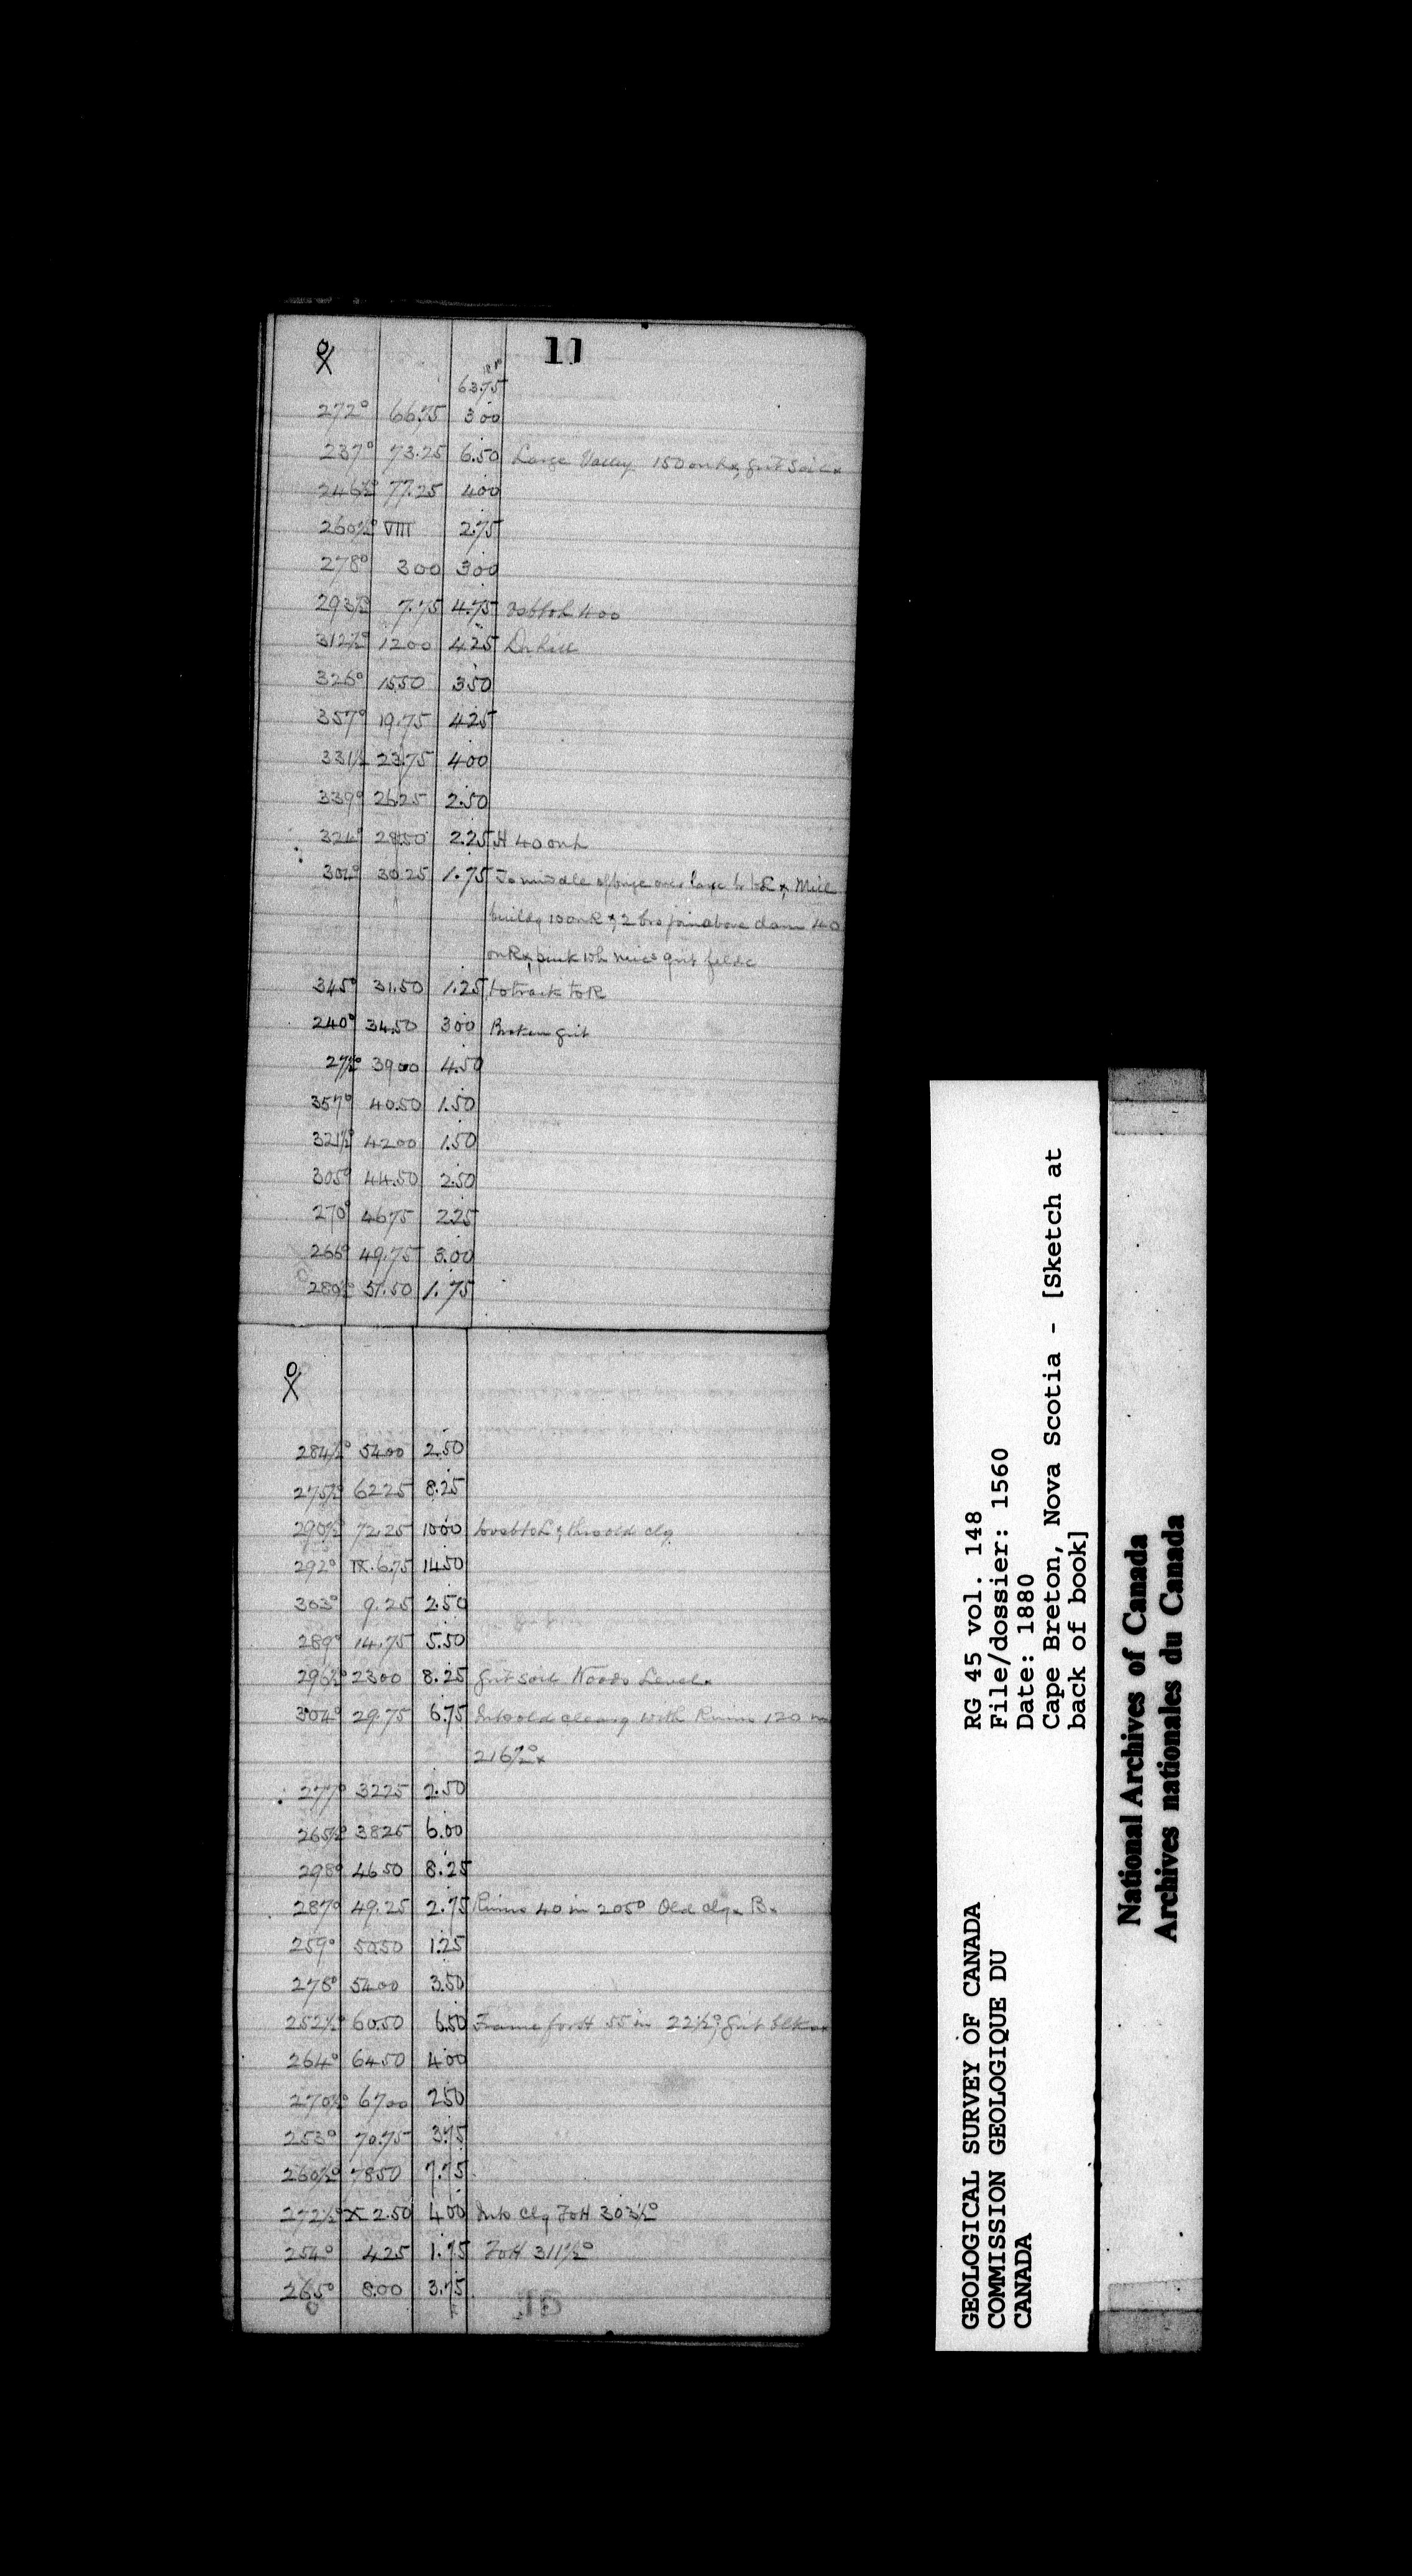 11
63.75
272° 66.75 300
237° 73.25 6.50 Large Valley 150 on L & grit soil
246½° 77.25 400
260½° VIII 2.75
278° 300 300
293½° 7.75 4.75 400
312½° 1200 4.25 Dn hill
326° 15.50 350
357° 19.75 425
331½ 23.75 400
339° 26.25 2.50
324° 28.50 2.25 H 40 on L
304° 30.25 1.75 To middle of bridge over large br to L & Mill
buildg 10 on R & 2 brs join above dam 40
on R & pink wh mica grit
345° 31.50 1.25 to track to R
240° 34.50 300 Broken grit
27½° 39.00 4.50
357° 40.50 1.50
321½° 42.00 1.50
305° 44.50 2.50
270° 46.75 2.25
266° 49.75 3.00
280½° 51.50 1.75
284½° 54.00 2.50
275½° 62.25 8.25
290½° 72.25 10.00 & thro old clg
292° IX. 6.75 14.50
303° 9.25 2.50
289° 14.75 5.50
296½° 23.00 8.25 Grit soil Woods Level
304° 29.75 6.75 Into old clearg with Ruins 120 in
216½°
277° 32.25 2.50
265½° 38.25 6.00
298° 46.50 8.25
287° 49.25 2.75 Ruins 40 in 205° Old clg. B.
259° 50.50 1.25
278° 54.00 3.50
252½° 60.50 6.50 Frame for H 55 in 22½° grit blks
264° 64.50 4.00
270½° 67.00 2.50
253° 70.75 3.75
260½° 78.50 7.75
272½° X 2.50 4.00 Into clg F o H 303½°
254° 4.25 1.75 F o H 311½°
265° 8.00 3.75
GEOLOGICAL SURVEY OF CANADA
COMMISSION GEOLOGIQUE DU
CANADA
RG 45 vol. 148
File/dossier: 1560
Date: 1880
Cape Breton, Nova Scotia - [Sketch at
back of book]
National Archives of Canada
Archives nationales du Canada